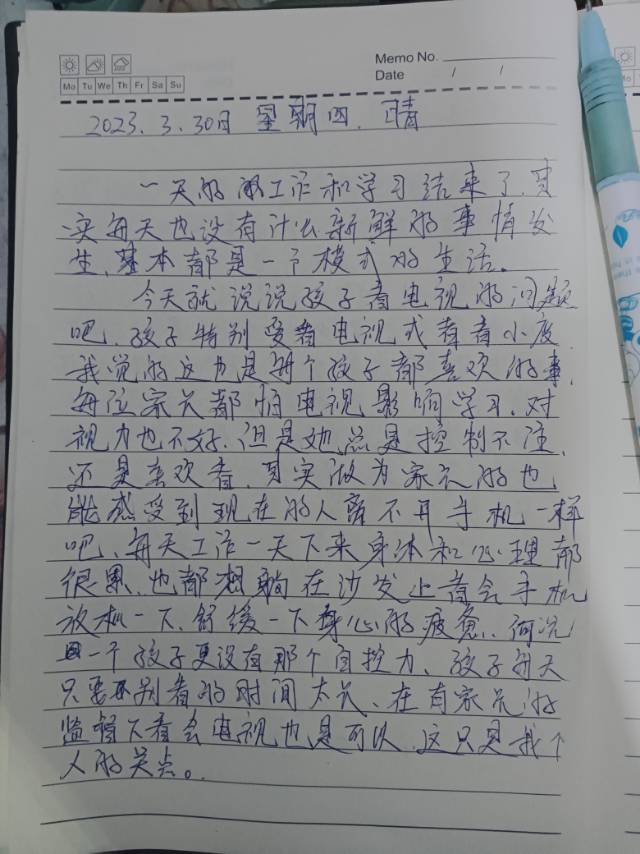 Memo No.
Date / /
Mo Tu We Th Fr Sa Su
2023.3.30日 星期四. 晴
一天的工作和学习结束了,其
实每天也没有什么新鲜的事情发
生,基本都是一个模式的生活。
今天就说说孩子看电视的问题
吧,孩子特别爱看电视或者看小度,
我觉的这也是每个孩子都喜欢的事,
每位家长都怕电视影响学习,对
视力也不好,但是她总是控制不住,
还是喜欢看,其实做为家长的也
能感受到现在的人离不开手机一样
吧,每天工作一天下来身体和心理都
很累,也都想躺在沙发上看会手机
放松一下,舒缓一下身心的疲惫,何况
一个孩子更没有那个自控力,孩子每天
只要不别看的时间太长,在有家长的
监督下看会电视也是可以,这只是我个
人的关点。